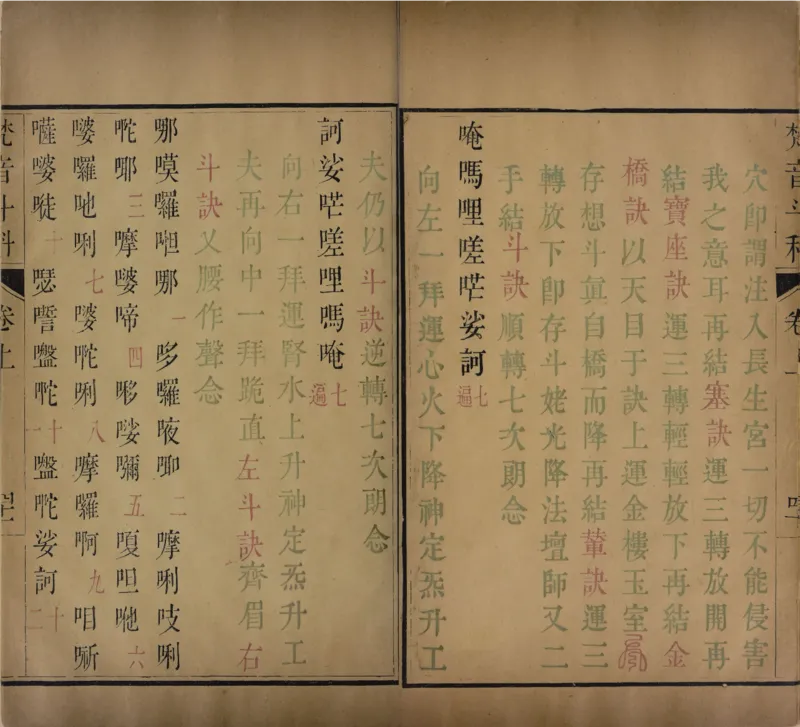 梵音斗科 卷上
穴即謂注入長生宮一切不能侵害
我之意耳再結塞訣運三轉放開再
結寶座訣運三轉輕輕放下再結金
橋訣以天目于訣上運金樓玉室
存想斗眞自橋而降再結輦訣運三
轉放下即存斗姥光降法壇師又二
手結斗訣順轉七次朗念
唵嗎哩嗟㗈娑訶七遍
向左一拜運心火下降神定炁升工
夫仍以斗訣逆轉七次朗念
訶娑㗈嗟哩嗎唵七遍
向右一拜運腎水上升神定炁升工
夫再向中一拜跪直左斗訣齊眉右
斗訣又腰作聲念
哪嗼囉呾哪一哆囉夜㖿二嚤唎吱唎
㖠㖿三嚤婆啼四哆婆彌五嗄呾咃六
婆囉吔唎七婆㖠唎八嚤囉啊九
梵音斗科 卷上